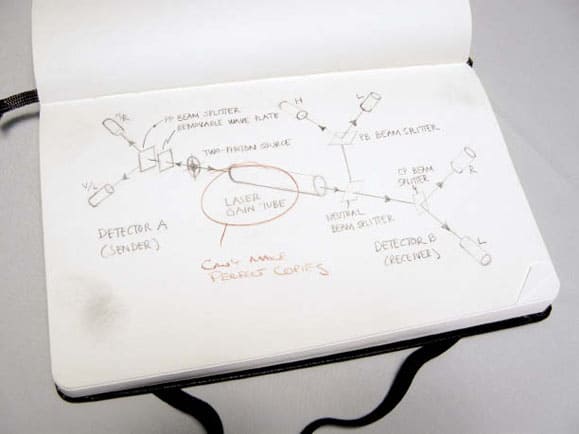 H/R
PP BEAM SPLITTER
REMOVABLE WAVE PLATE
TWO-PHOTON SOURCE
V/L
DETECTOR A
(SENDER)
LASER
GAIN TUBE
CAN'T MAKE
PERFECT COPIES
H
L
PB BEAM SPLITTER
NEUTRAL
BEAM SPLITTER
CP BEAM
SPLITTER
R
L
DETECTOR B
(RECEIVER)